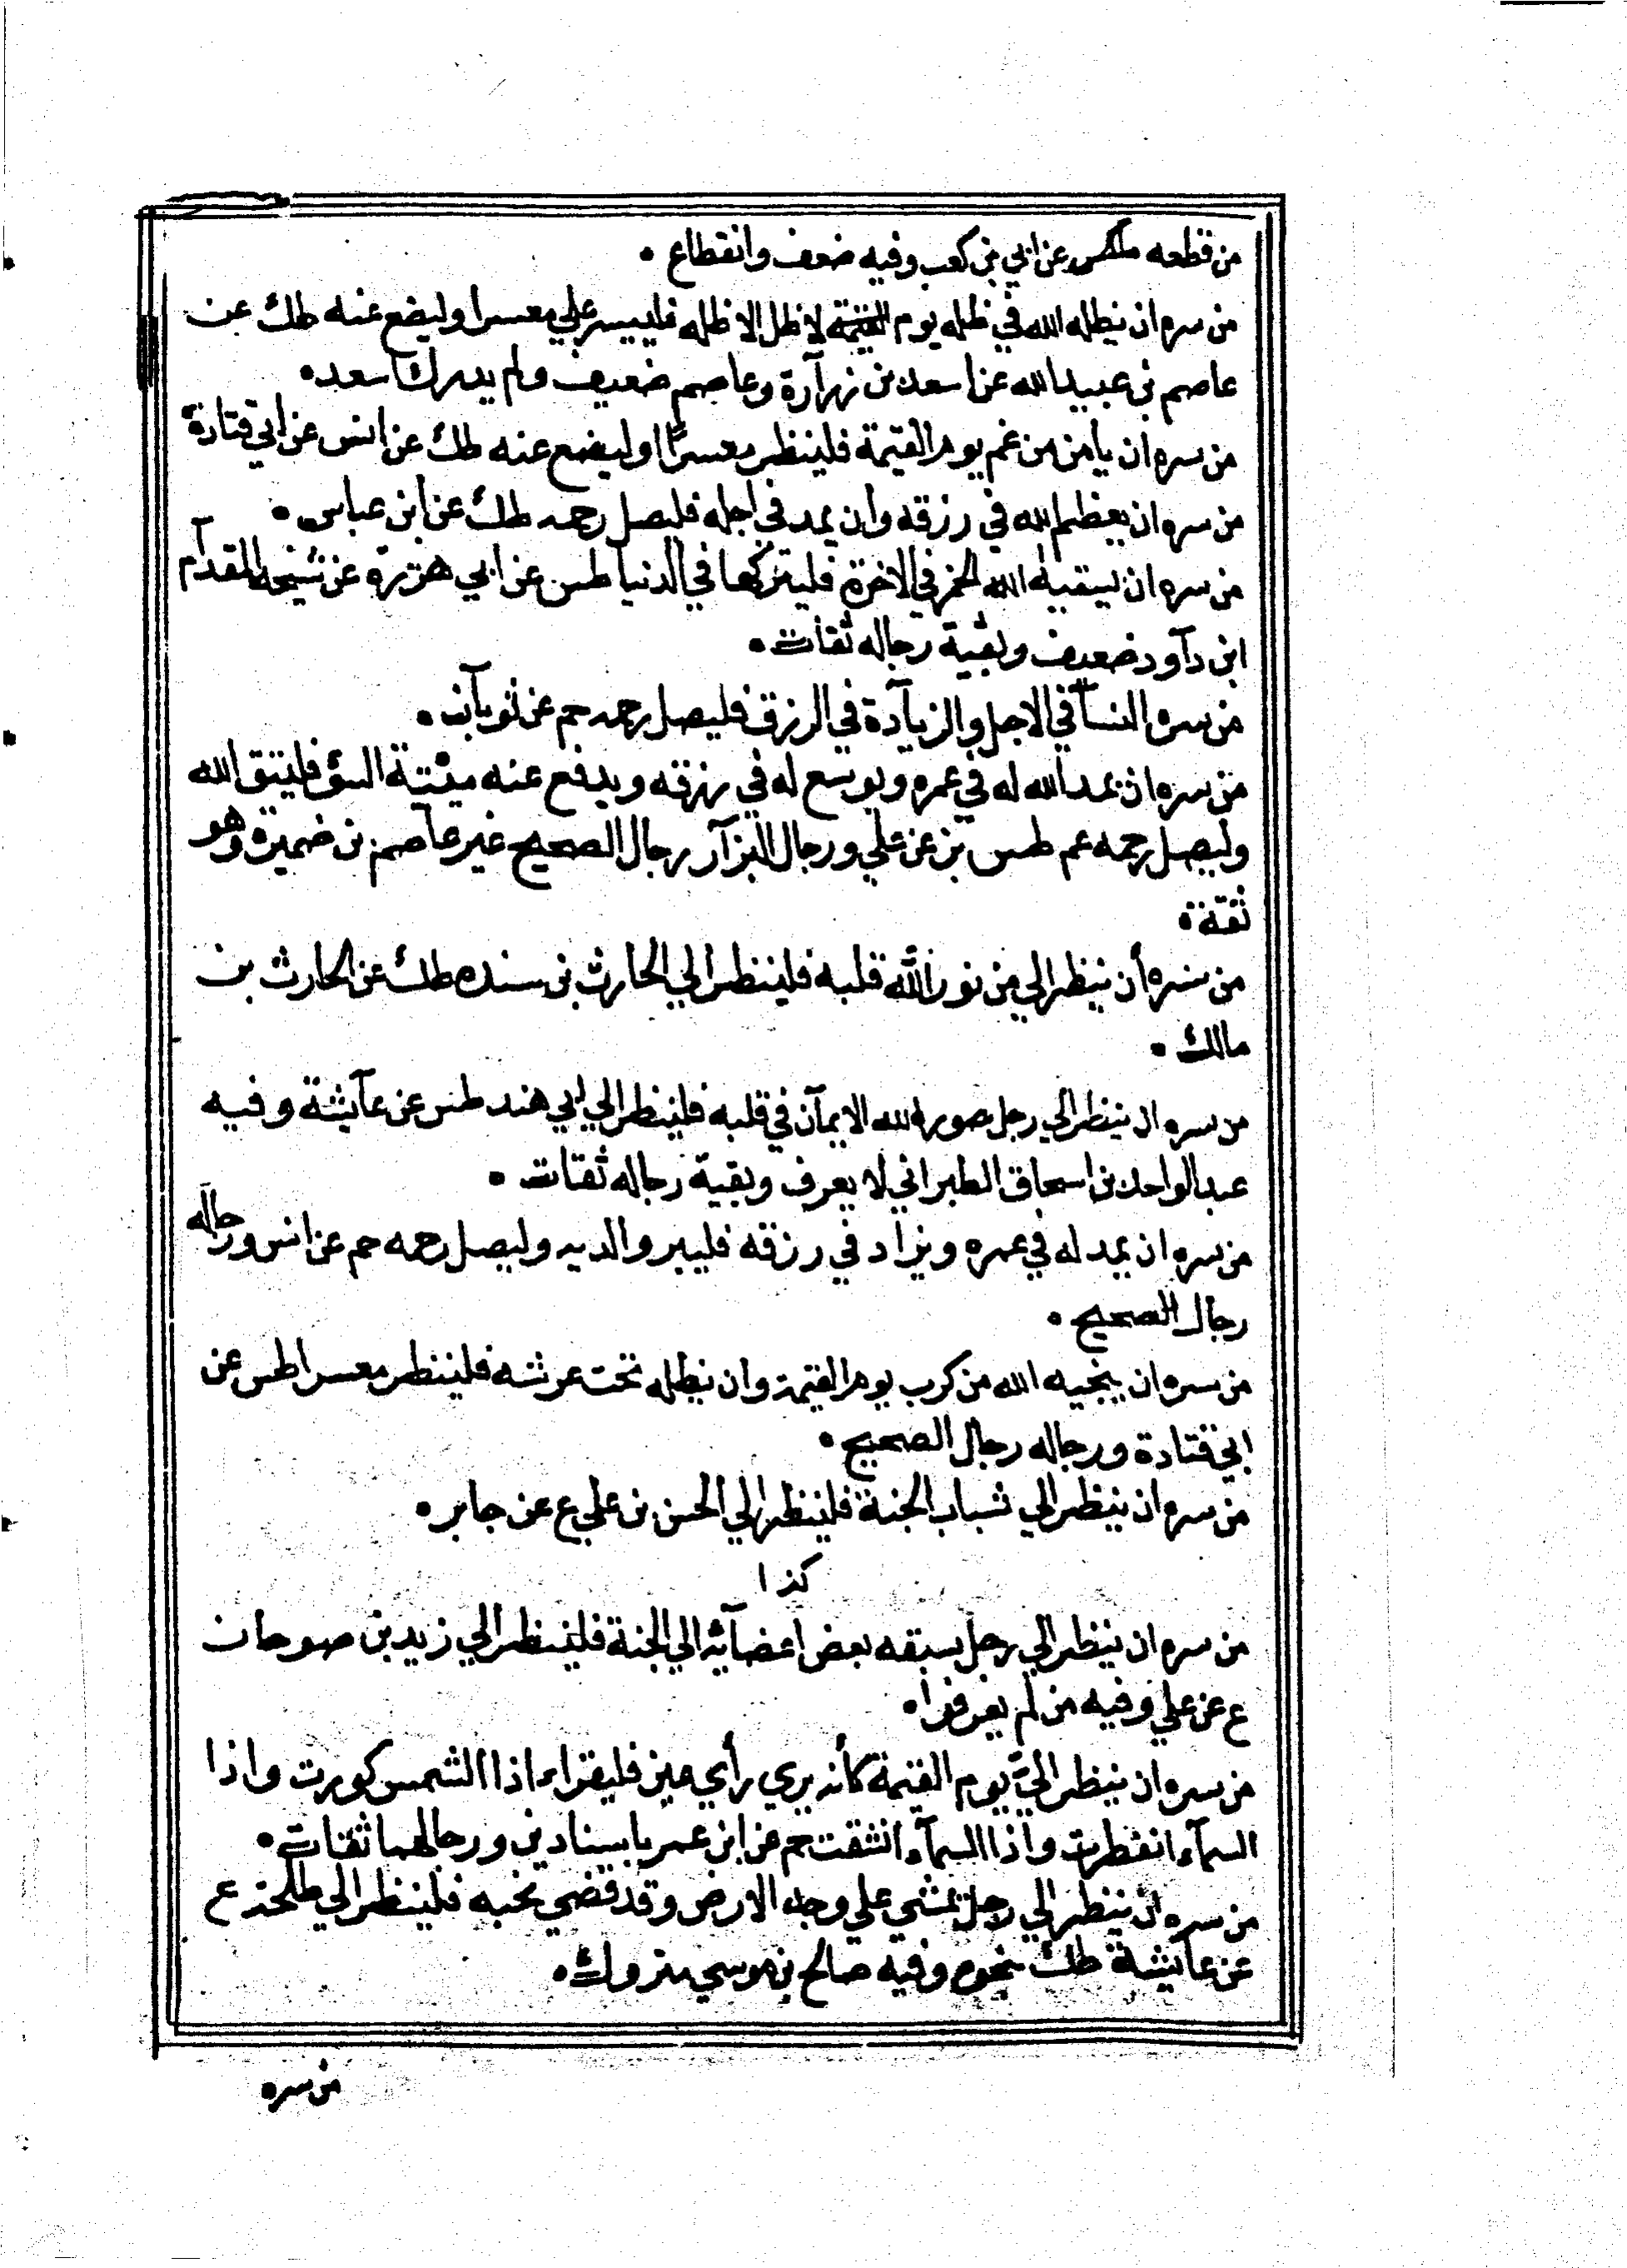 من قطعه طكس عن ابي بن كعب وفيه ضعف وانقطاع .
من سره ان يظله الله في ظله يوم القيمة لا ظل الا ظله فلييسر علي معسر اوليضع عنه طك عن
عاصم بن عبيد الله عن اسعد بن زرآرة وعاصم ضعيف ولم يدرك اسعد .
من سره ان يأمن من غم يوم القيمة فلينظر معسرًا اوليضع عنه طك عن انس عن ابي قتادة
من سره ان يعظم الله في رزقه وان يمد في اجله فليصل رحمه طك عن ابن عباس .
من سره ان يسقيه الله الخمر في الاخرة فليتركها في الدنيا طس عن ابي هريرة عن شيخه المقدآم
ابن دآود ضعيف وبقية رجاله ثقات .
من سره النسآ في الاجل والزيآدة في الرزق فليصل رحمه حم عن ثوبآن .
من سره ان يمد الله له في عمره ويوسع له في رزقه ويدفع عنه ميتة السؤ فليتق الله
وليصل رحمه عم طس بز عن علي ورجال البزآر رجال الصحيح غير عاصم بن ضميرة وهو
ثقة .
من سره أن ينظر الي من نور الله قلبه فلينظر الي الحارث بن سنده طك عن الحارث بن
مالك .
من سره ان ينظر الي رجل صور الله الايمآن في قلبه فلينظر الي ابي هند طس عن عآيشة وفيه
عبد الواحد بن اسحاق الطبراني لا يعرف وبقية رجاله ثقات .
من سره ان يمد له في عمره ويزاد في رزقه فليبر والديه وليصل رحمه حم عن انس ورجاله
رجال الصحيح .
من سره ان ينجيه الله من كرب يوم القيمة وان يظله تحت عرشه فلينظر معسرا طس عن
ابي قتادة ورجاله رجال الصحيح .
من سره ان ينظر الي شباب الجنة فلينظر الي الحسن بن علي ع عن جابر .
كذا
من سره ان ينظر الي رجل يسبقه بعض اعضآئه الي الجنة فلينظر الي زيد بن صوحان
ع عن علي وفيه من لم يعرفوا .
من سره ان ينظر الي يوم القيمة كأنه يري رأي عين فليقراء اذا الشمس كورت واذا
السمآء انفطرت واذا السمآء انشقت حم عن ابن عمر باسنادين ورجالهما ثقات .
من سره ان ينظر الي رجل يمشي علي وجه الارض وقد قضي نحبه فلينظر الي طلحة ع
عن عآيشة طك نحوه وفيه صالح بن موسي متروك .
من سره